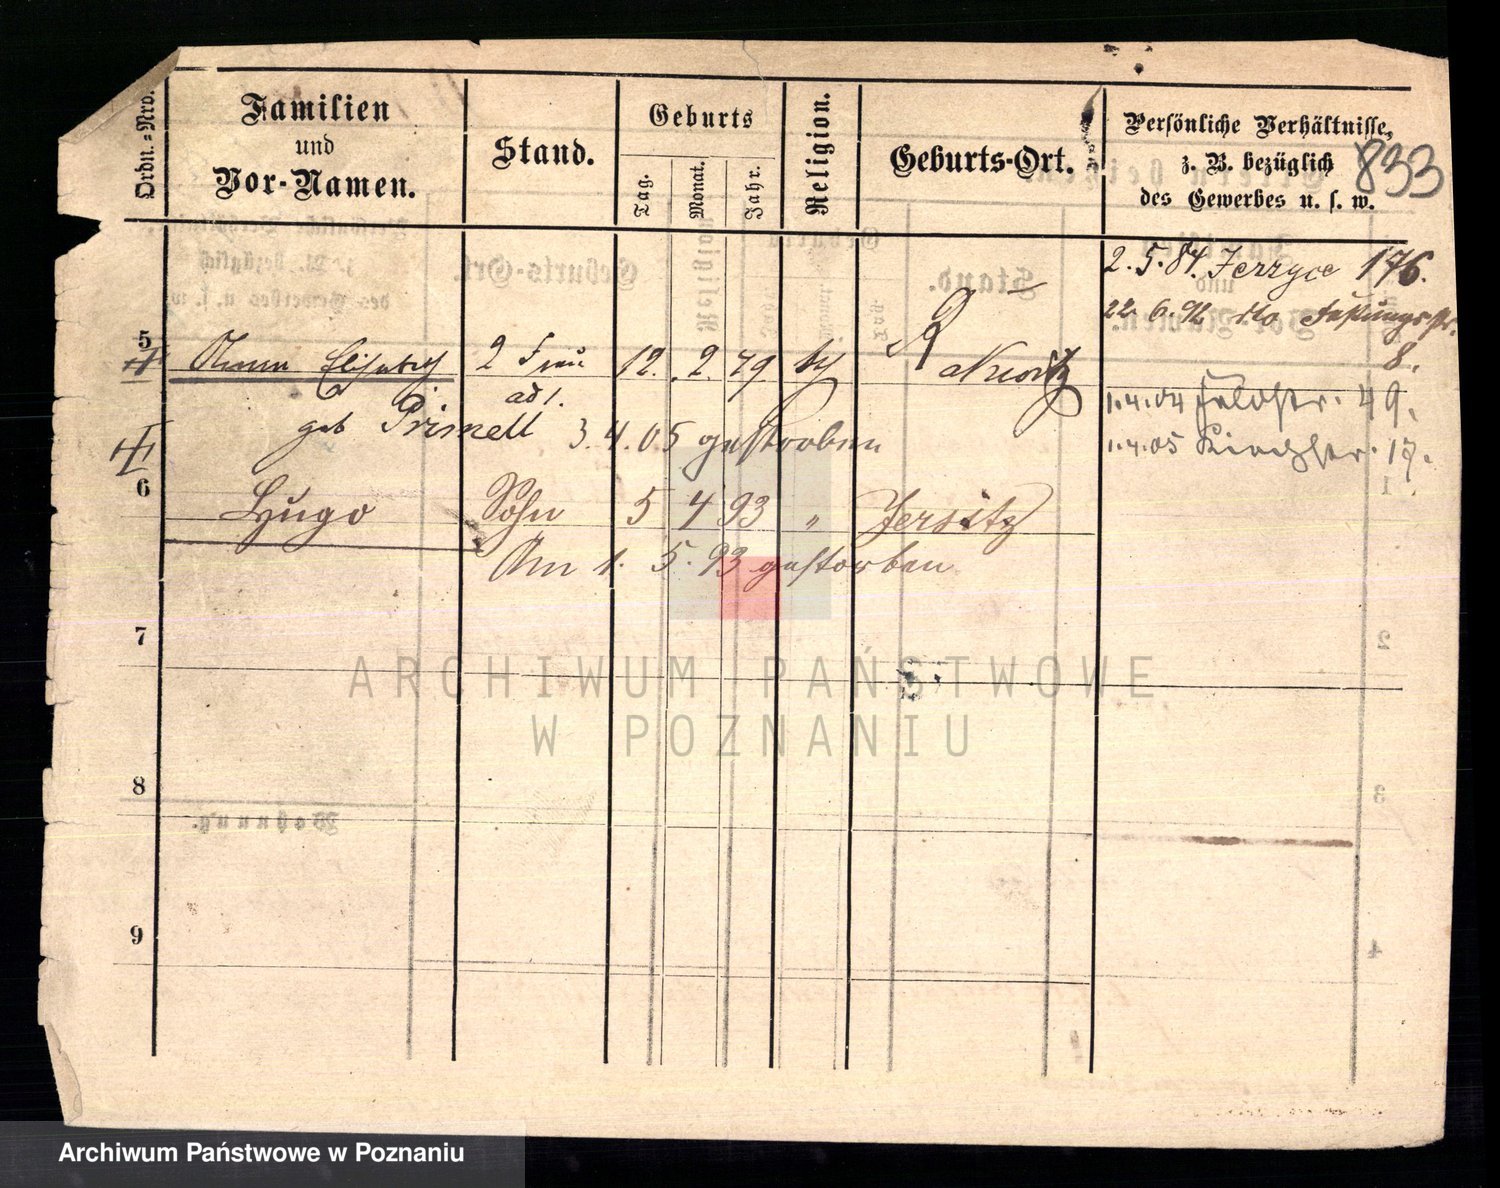 Ordn.=Nro.
Familien
und
Vor-Namen.
Stand.
Geburts
Tag.
Monat.
Jahr.
Religion.
Geburts-Ort.
Persönliche Verhältnisse,
z. B. bezüglich
des Gewerbes u. s. w.
833
2. 5. 84. Jerzyce 176.
22. 6. 92 dto Festungsstr.
8.
5
Anna Elisabeth 2 Frau 12. 2. 79 Rakwitz
geb Primell
3. 4. 05 gestorben
1. 4. 04 Feldstr. 49.
1. 4. 05 Kirchstr. 17.
6
Hugo Sohn 5 4 93 " Jersitz
Am 1. 5. 93 gestorben
7
8
9
ARCHIWUM PAŃSTWOWE
W POZNANIU
Archiwum Państwowe w Poznaniu